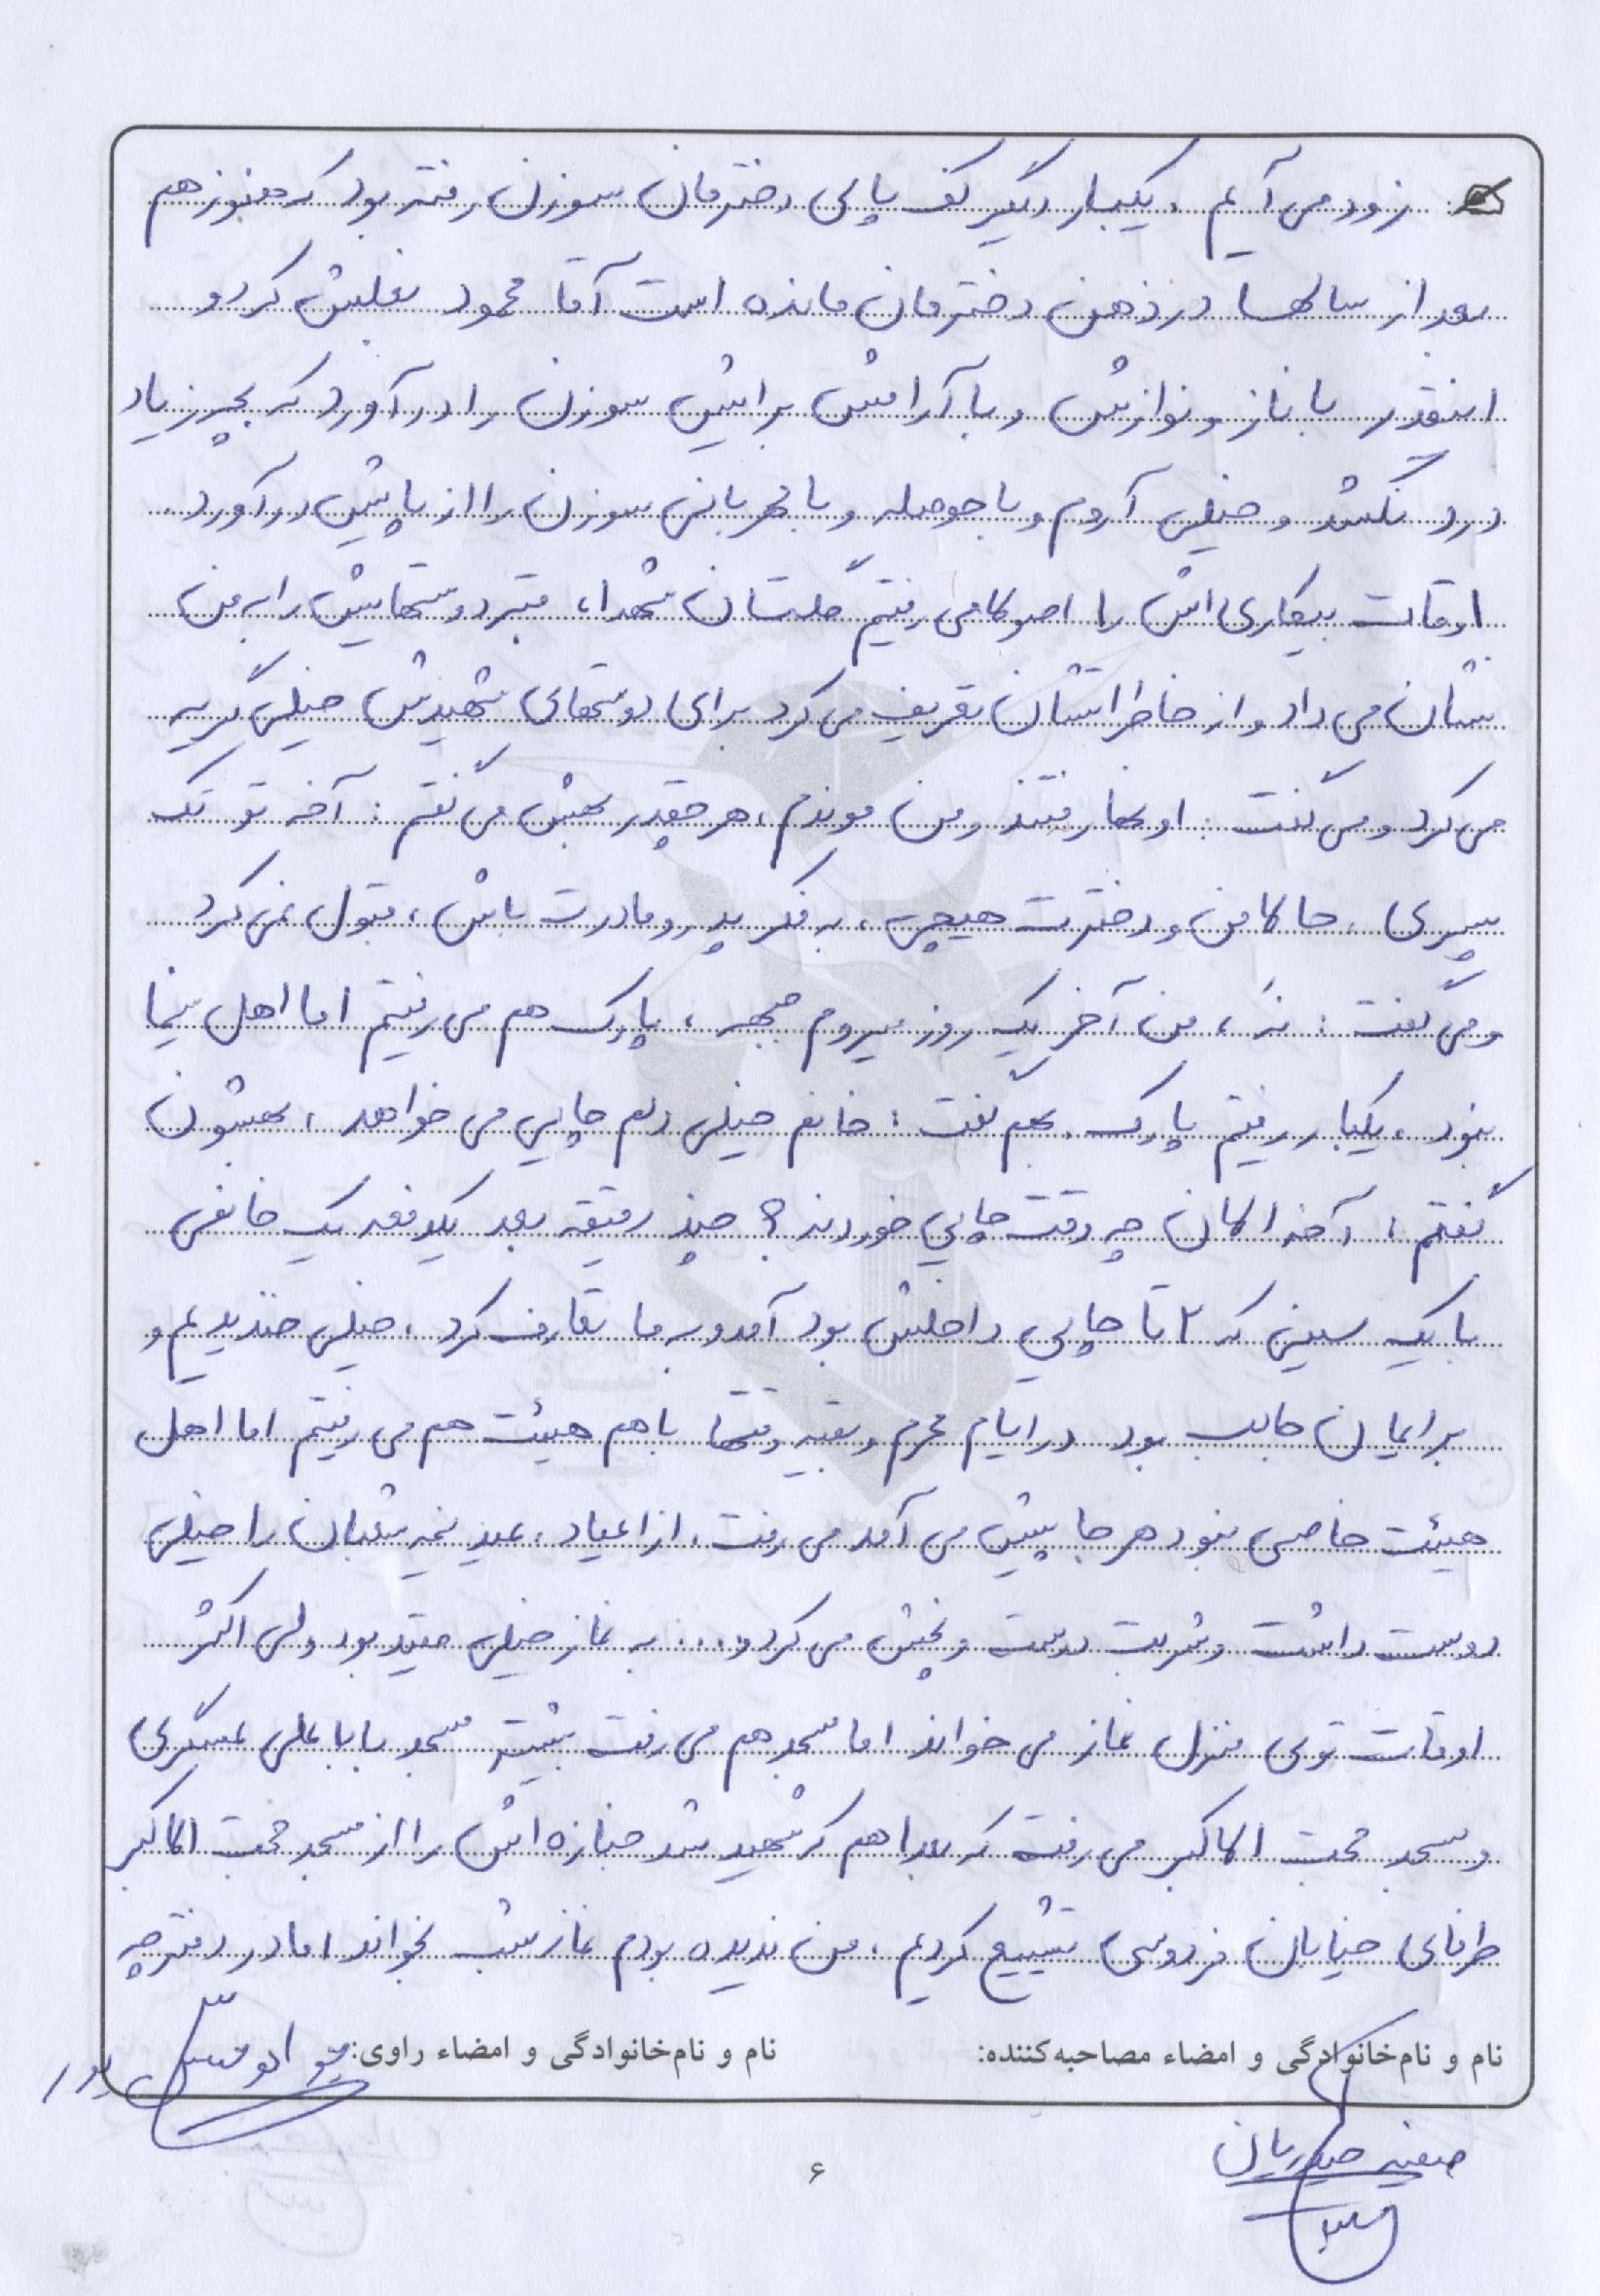 زود می آیم . یکبار دیگر کف پای دخترمان سوزن رفته بود که هنوز هم
بعد از سالها در ذهن دخترمان مانده است آقا محمود بغلش کرد و
اینقدر با ناز و نوازش و با آرامش برایش سوزن را درآورد که بچه زیاد
درد نکشد و خیلی آروم و با حوصله و با مهربانی سوزن را از پایش درآورد.
اوقات بیکاری اش را اصولا می رفتیم گلستان شهداء، قبر دوستهایش را به من
نشان می داد و از خاطراتشان تعریف می کرد برای دوستهای شهیدش خیلی گریه
می کرد و می گفت : اونها رفتند و من موندم ، هر چقدر بهش می گفتم : آخه تو تک
پسری ، حالا من و دخترت هیچی ، به فکر پدر و مادرت باش ، قبول نمی کرد
و می گفت : نه ، من آخر یک روز میروم جبهه ، پارک هم می رفتیم اما اهل سینما
نبود ، یکبار رفتیم پارک . بهم گفت : خانم خیلی دلم چایی می خواهد ، بهشون
گفتم ، آخه الان چه وقت چایی خوردنه ؟ چند دقیقه بعد یکدفعه یک خانمی
با یک سینی که ۲ تا چایی داخلش بود آمد و به ما تعارف کرد ، خیلی خندیدیم و
برایمان جالب بود در ایام محرم و بقیه وقتها باهم هیئت هم می رفتیم اما اهل
هیئت خاصی نبود هر جا پیش می آمد می رفت . از اعیاد ، عید نیمه شعبان را خیلی
دوست داشت و شربت درست و پخش می کرد و .... به نماز خیلی مقید بود ولی اکثر
اوقات توی منزل نماز می خواند اما مسجد هم می رفت بیشتر مسجد بابا علی عسگری
و مسجد محب الاکبر می رفت که بعدا هم که شهید شد جنازه اش را از مسجد محب الاکبر
طرفای خیابان فردوسی تشییع کردیم . من ندیده بودم نماز شب بخواند اما در دفترچه
نام و نام‌خانوادگی و امضاء مصاحبه‌کننده:
نام و نام‌خانوادگی و امضاء راوی:
۶